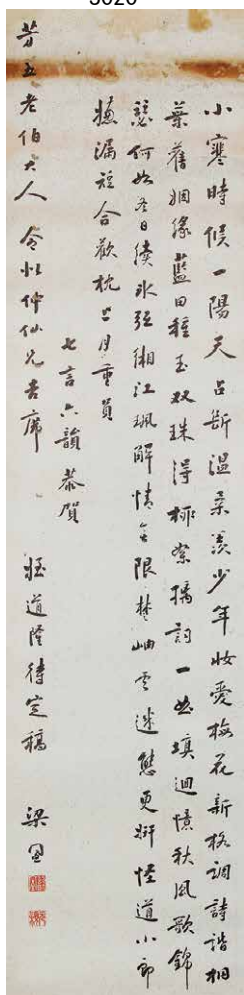 小寒時候一陽天占斷溫柔羨少年妝愛梅花新格調詩諧桐
葉舊姻緣藍田種玉双珠得案摛詞一曲填迴憶秋風歌錦
瑟何如冬日續冰弦湘江珮解情無限楚岫雲迷態更妍怪道小郎
嫌漏短合歡枕上月重圓
七言六韻恭賀
芳五老伯大人 令似仲仙兄吉席 姪道隆待定稿 梁